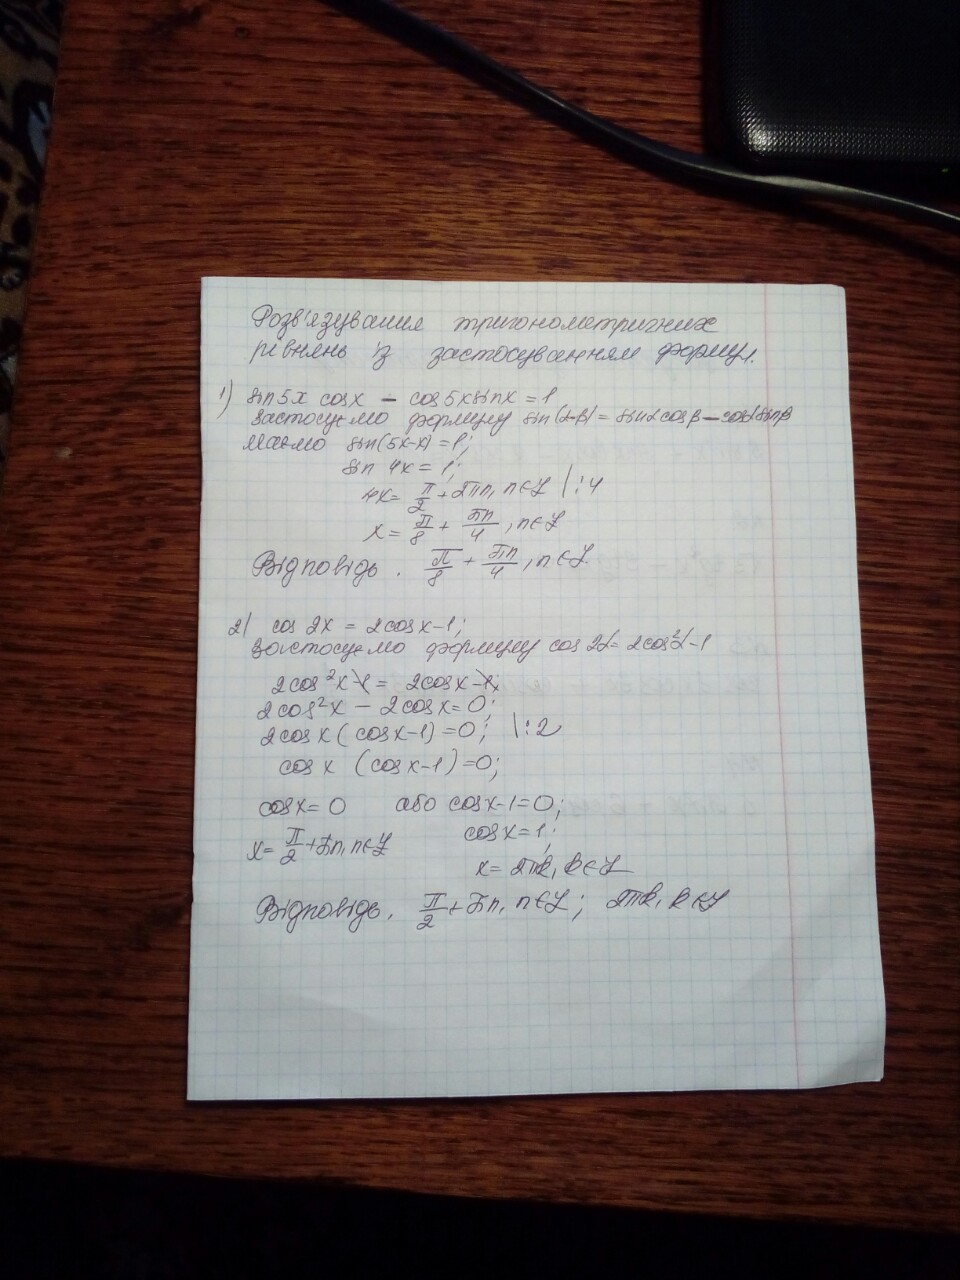 Розв'язування тригонометричних
рівнянь із застосуванням формул.
1) sin5x cosx - cos5x sinx = 1
Застосуємо формулу sin(α-β) = sinα cosβ - cosα sinβ
Маємо sin(5x-x) = 1;
sin 4x = 1;
4x = π/2 + 2πn, n∈Z |:4
x = π/8 + πn/4, n∈Z
Відповідь. π/8 + πn/4, n∈Z.
2) cos 2x = 2cosx-1;
Застосуємо формулу cos 2α = 2cos²α-1
2cos²x-1 = 2cosx-1;
2cos²x - 2cosx = 0;
2cosx (cosx-1) = 0; |:2
cosx (cosx-1) = 0;
cosx = 0 або cosx-1 = 0;
cosx = 1;
x = π/2 + πn, n∈Z
x = 2πk, k∈Z
Відповідь. π/2 + πn, n∈Z; 2πk, k∈Z